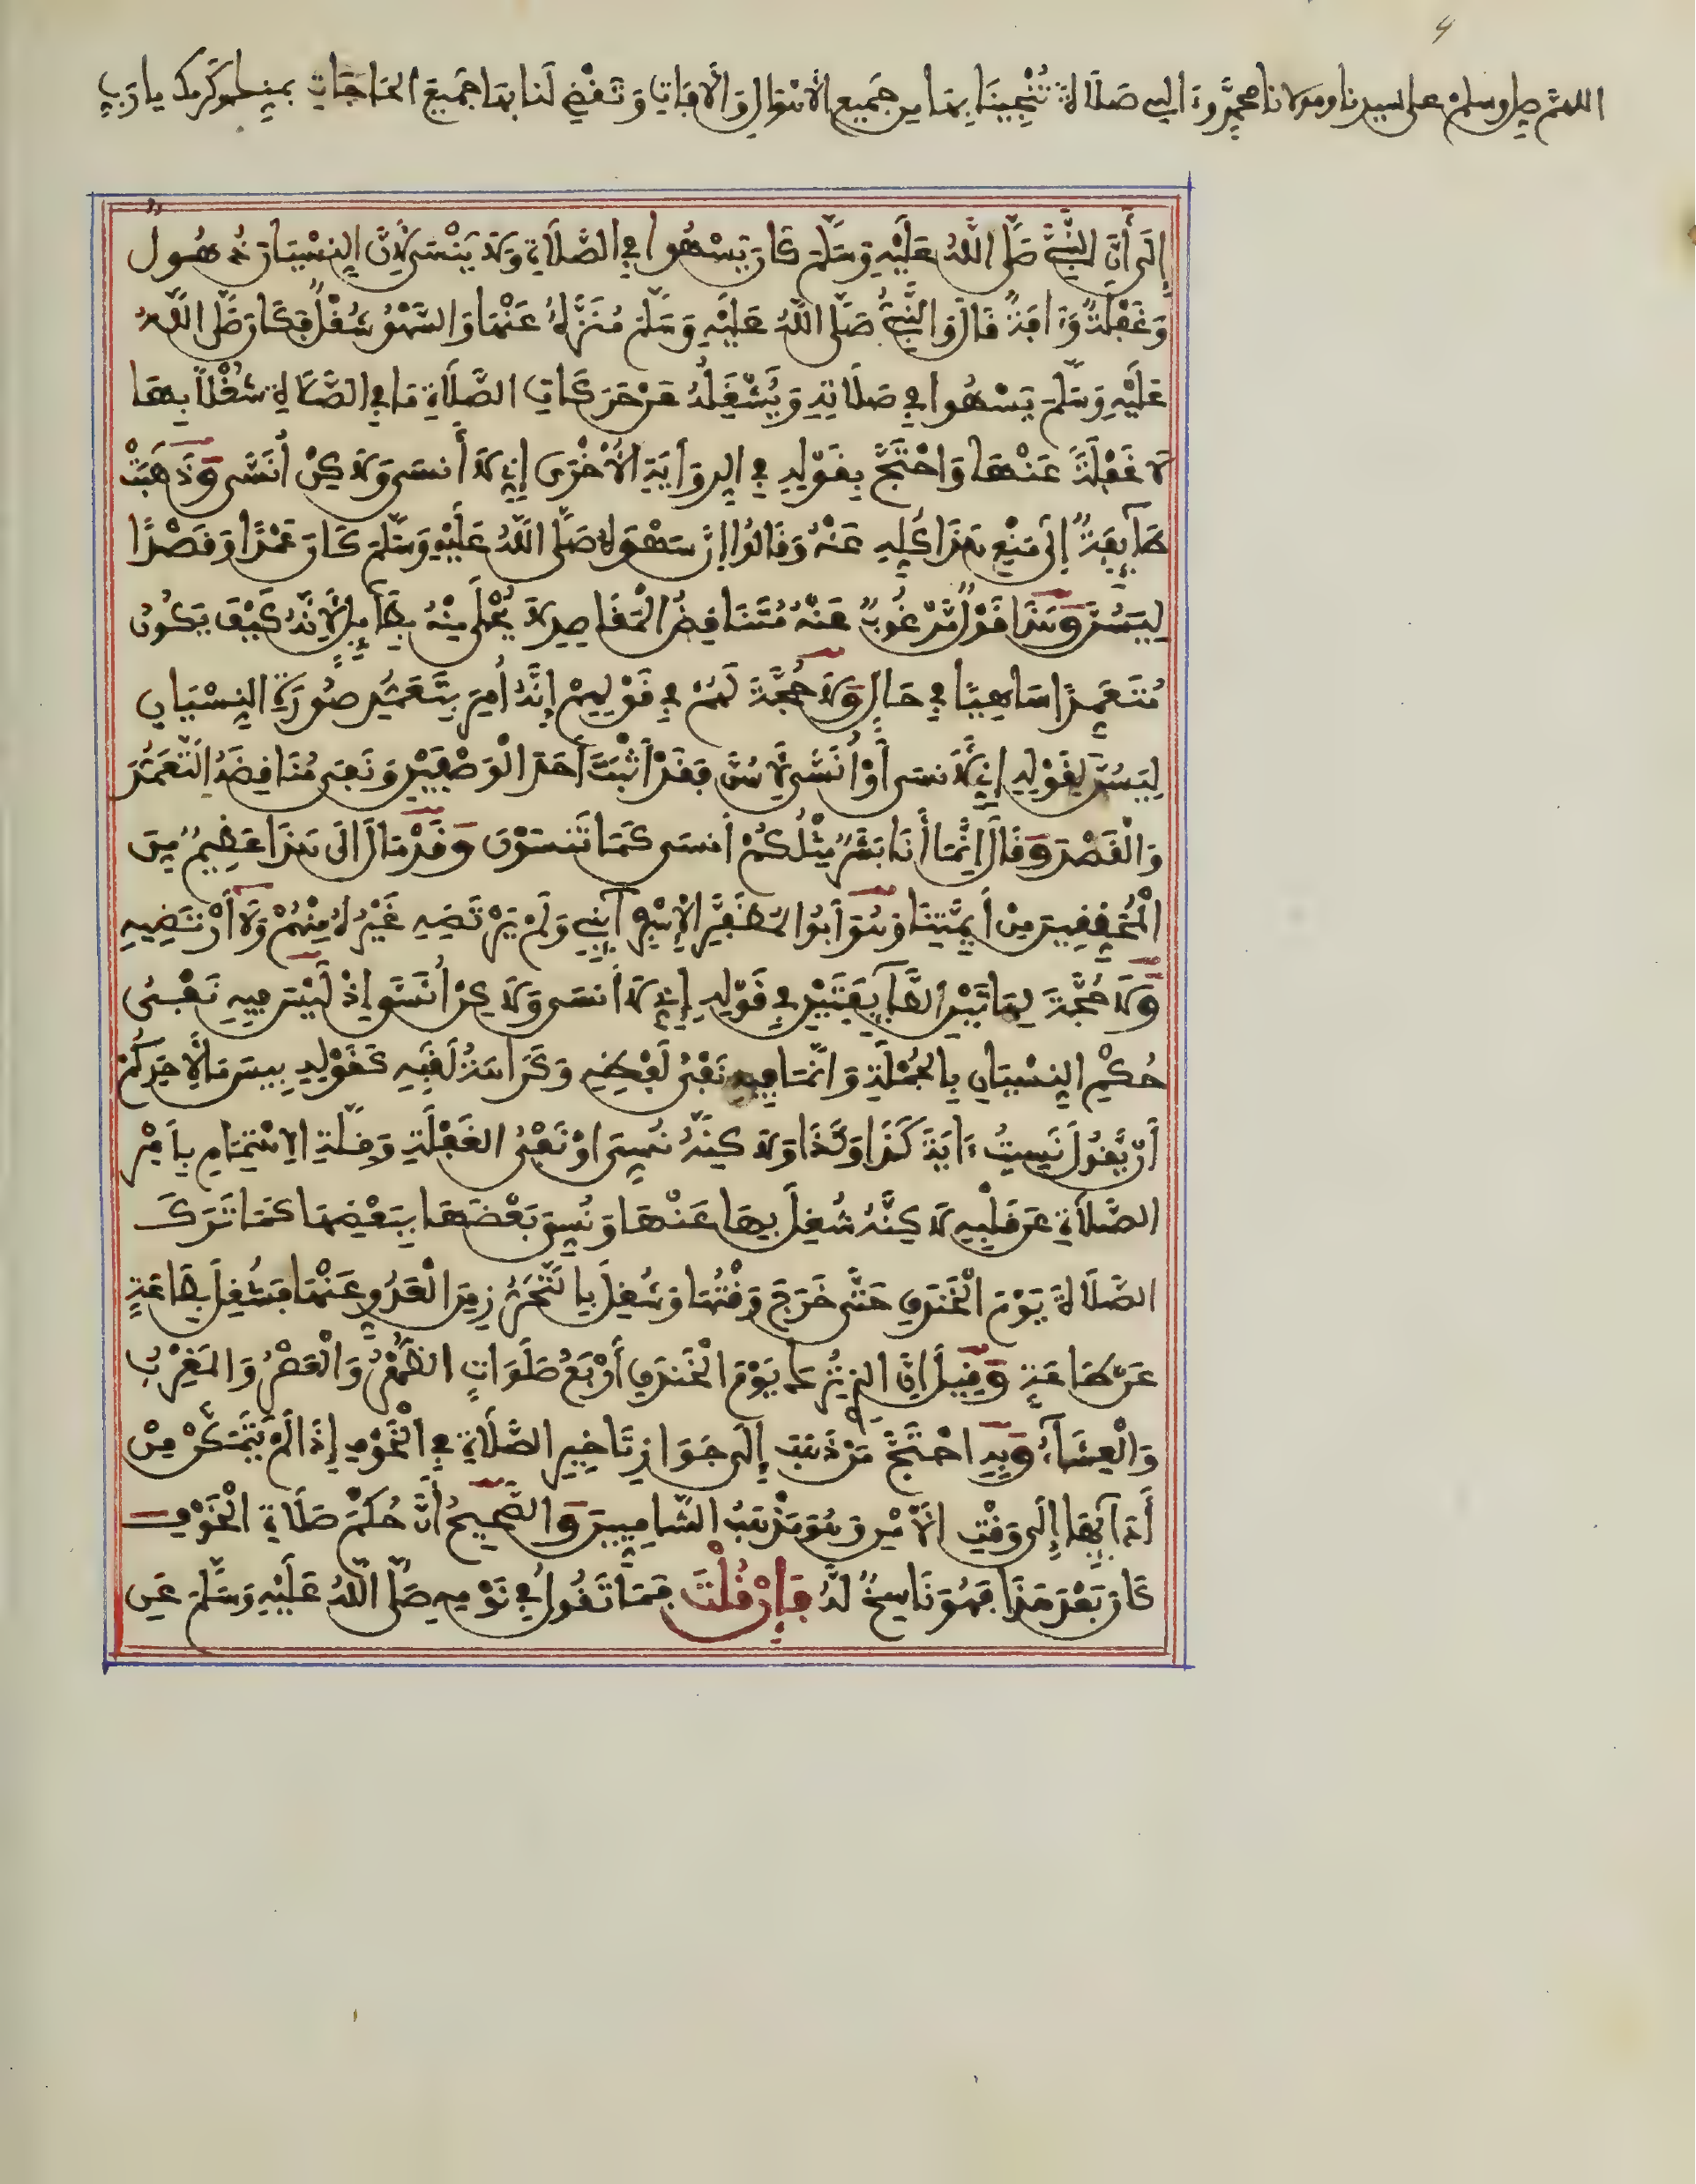 اللهم صل وسلم على سيدنا ومولانا محمد وءاله صلاة تنجينا بها من جميع الأهوال والآفات وتقضي لنا بها جميع الحاجات بمنك وكرمك يا رب
إِلَى أَنَّ النَّبِيَّ صَلَّى اللَّهُ عَلَيْهِ وَسَلَّمَ كَانَ يَسْهُوا فِي الصَّلَاةِ وَلَا يَنْسَى لِأَنَّ النِّسْيَانَ ذُهُولٌ
وَغَفْلَةٌ وَءَافَةٌ قَالَ وَالنَّبِيُّ صَلَّى اللَّهُ عَلَيْهِ وَسَلَّمَ مُنَزَّهٌ عَنْهَا وَالسَّهْوُ شُغْلٌ فَكَانَ صَلَّى اللَّهُ
عَلَيْهِ وَسَلَّمَ يَسْهُوا فِي صَلَاتِهِ وَيُشْغِلُهُ عَنْ حَرَكَاتِ الصَّلَاةِ مَا فِي الصَّلَاةِ شُغْلًا بِهَا
لَا غَفْلَةً عَنْهَا وَاحْتَجَّ بِقَوْلِهِ فِي الرِّوَايَةِ الْأُخْرَى إِنِّي لَا أَنسَى وَلَاكِنْ أُنَسَّى وَذَهَبَتْ
طَآئِفَةٌ إِلَى مَنْعِ هَذَا كُلِّهِ عَنْهُ وَقَالُوا إِنَّ سَهْوَهُ صَلَّى اللَّهُ عَلَيْهِ وَسَلَّمَ كَانَ عَمْدًا وَقَصْدًا
لِيَسُنَّ وَهَذَا قَوْلٌ مَّرْغُوبٌ عَنْهُ مُتَنَاقِضُ الْمَقَاصِدِ لَا يُحْلَى مِنْهُ بِطَآئِلٍ لِأَنَّهُ كَيْفَ يَكُونُ
مُتَعَمِّدًا سَاهِيًا فِي حَالٍ وَلَا حُجَّةَ لَهُمْ فِي قَوْلِهِمْ إِنَّهُ أُمِرَ بِتَعَمُّدِ صُورَةِ النِّسْيَانِ
لِيَسُنَّ لِقَوْلِهِ إِنِّي لَأَنسَى أَوْ أُنَسَّى لِأَسُنَّ فَقَدْ أَثْبَتَ أَحَدَ الْوَصْفَيْنِ وَنَفَى مُنَاقَضَةَ التَّعَمُّدِ
وَالْقَصْدِ وَقَالَ إِنَّمَا أَنَا بَشَرٌ مِثْلُكُمْ أَنسَى كَمَا تَنسَوْنَ وَقَدْ مَالَ إِلَى هَذَا عَظِيمٌ مِّنَ
الْمُحَقِّقِينَ مِنْ أَئِمَّتِنَا وَهُوَ أَبُوا الْمُظَفَّرِ الْإِسْفَرَآئِنِي وَلَمْ يَرْتَضِهِ غَيْرُهُ مِنْهُمْ وَلَا أَرْتَضِيهِ
وَلَا حُجَّةَ لِهَاتَيْنِ الطَّآئِفَتَيْنِ فِي قَوْلِهِ إِنِّي لَا أَنسَى وَلَاكِنْ أُنَسَّى إِذْ لَيْسَ فِيهِ نَفْيُ
حُكْمِ النِّسْيَانِ بِالْجُمْلَةِ وَإِنَّمَا فِيهِ نَفْيُ لَفْظِهِ وَكَرَاهَةُ لَقَبِهِ كَقَوْلِهِ بِيسَ مَا لِأَحَدِكُمْ
أَنْ يَّقُولَ نَسِيتُ ءَايَةَ كَذَا وَكَذَا وَلَاكِنَّهُ نُسِّيَ أَوْ نَفْيُ الْغَفْلَةِ وَقِلَّةِ الِاهْتِمَامِ بِأَمْرِ
الصَّلَاةِ عَن قَلْبِهِ لَاكِنَّهُ شُغِلَ بِهَا عَنْهَا وَنُسِّيَ بَعْضَهَا بِبَعْضِهَا كَمَا تَرَكَ
الصَّلَاةَ يَوْمَ الْخَنْدَقِ حَتَّى خَرَجَ وَقْتُهَا وَشُغِلَ بِالتَّحَرُّزِ مِنَ الْعَدُوِّ عَنْهَا فَشُغِلَ بِطَاعَةٍ
عَن طَاعَةٍ وَقِيلَ إِنَّ الَّذِي تُرِكَ يَوْمَ الْخَنْدَقِ أَرْبَعُ صَلَوَاتٍ الظُّهْرُ وَالْعَصْرُ وَالْمَغْرِبُ
وَالْعِشَآءُ وَبِهِ احْتَجَّ مَنْ ذَهَبَ إِلَى جَوَازِ تَأْخِيرِ الصَّلَاةِ فِي الْخَوْفِ إِذَا لَمْ يَتَمَكَّنْ مِنْ
أَدَآئِهَا إِلَى وَقْتِ الْأَمْنِ وَهُوَ مَذْهَبُ الشَّامِيِّينَ وَالصَّحِيحُ أَنَّ حُكْمَ صَلَاةِ الْخَوْفِ
كَانَ بَعْدَ هَذَا فَهُوَ نَاسِخٌ لَهُ فَإِنْ قُلْتَ فَمَا تَقُولُ فِي نَوْمِهِ صَلَّى اللَّهُ عَلَيْهِ وَسَلَّمَ عَنِ